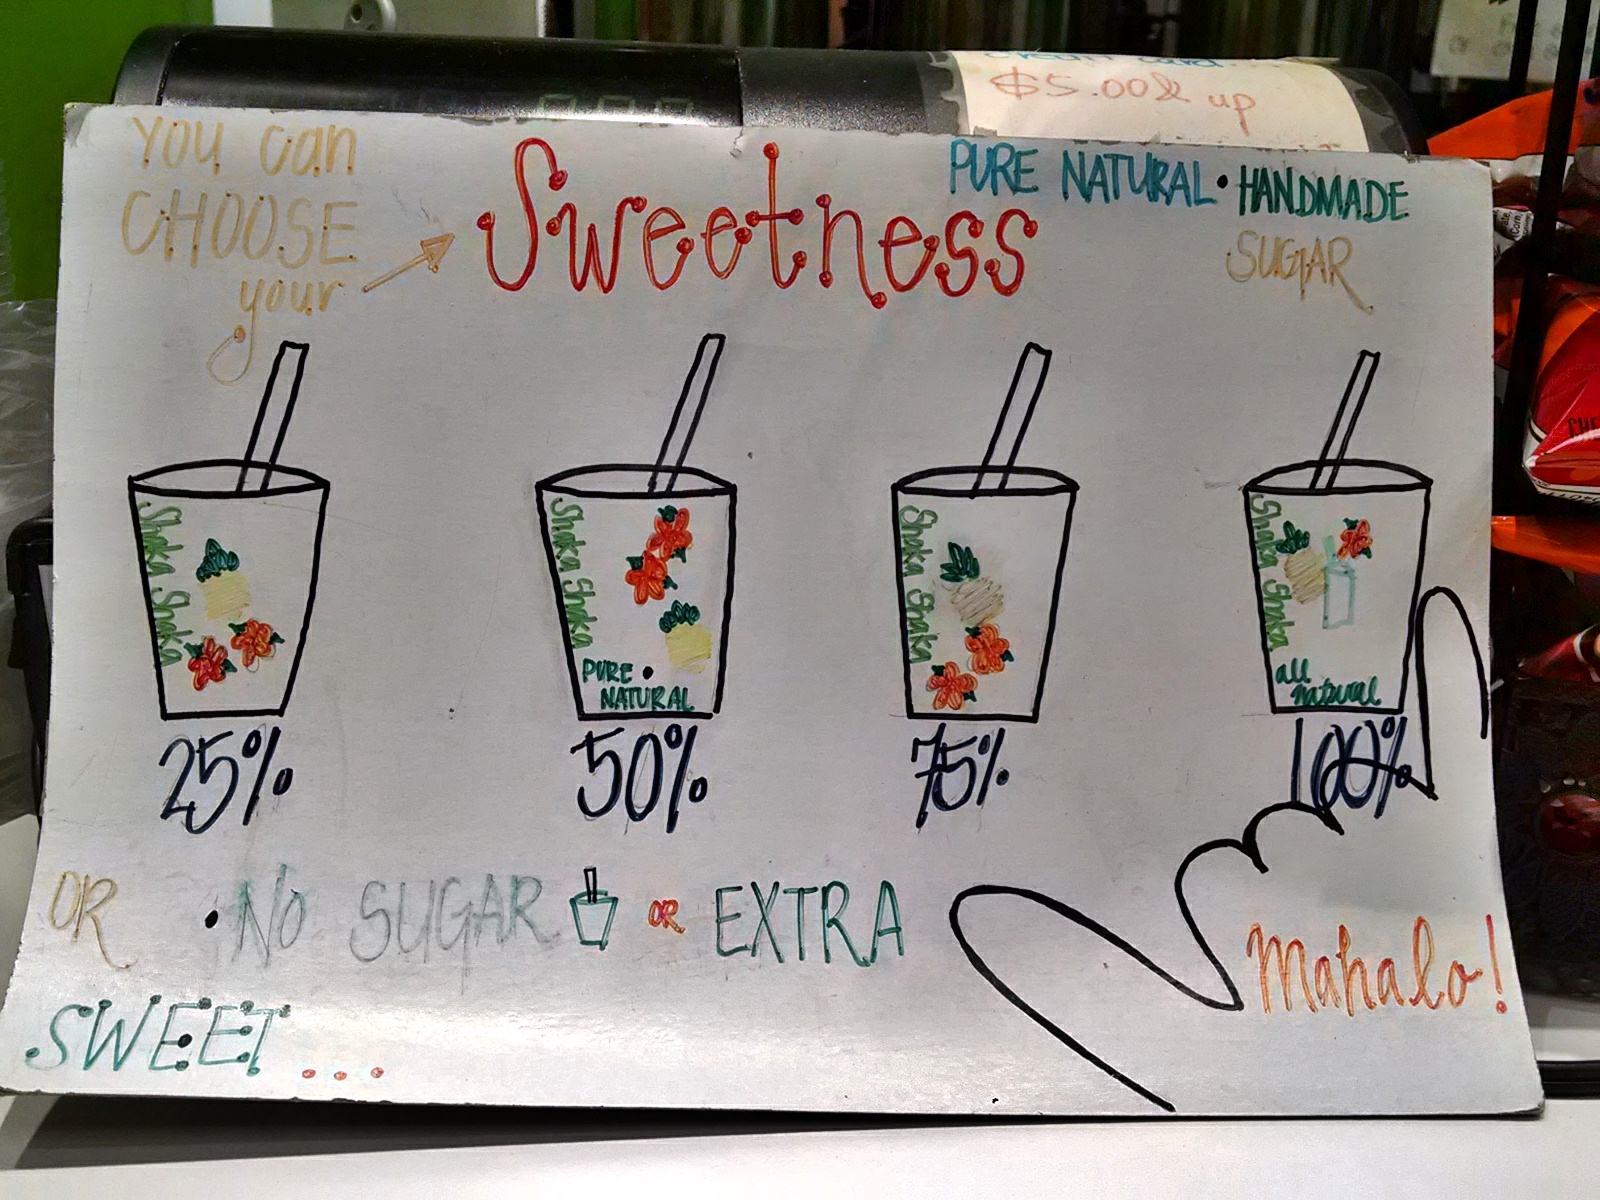 credit card
$5.00 & up
YOU can
CHOOSE
your
Sweetness
PURE NATURAL • HANDMADE
SUGAR
Shaka Shaka
Shaka Shaka
PURE •
NATURAL
Shaka Shaka
Shaka Shaka
all
natural
25%
50%
75%
100%
OR • NO SUGAR OR EXTRA
SWEET...
Mahalo!